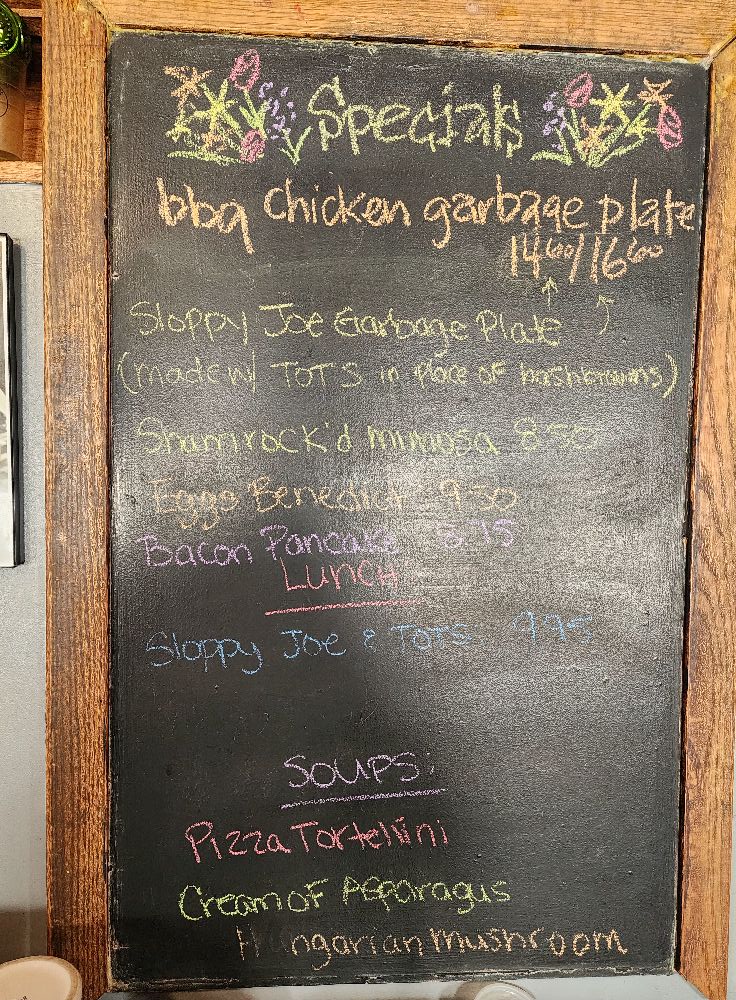 Specials
bbq chicken garbage plate
14⁰⁰/16⁰⁰
Sloppy Joe Garbage Plate
(made w/ TOTS in place of hashbrowns)
Shamrock'd mimosa 8.50
Eggs Benedict 9.50
Bacon Pancake 8.75
LUNCH
Sloppy Joe & TOTS 9.95
SOUPS:
Pizza Tortellini
Cream OF Asparagus
Hungarian mushroom